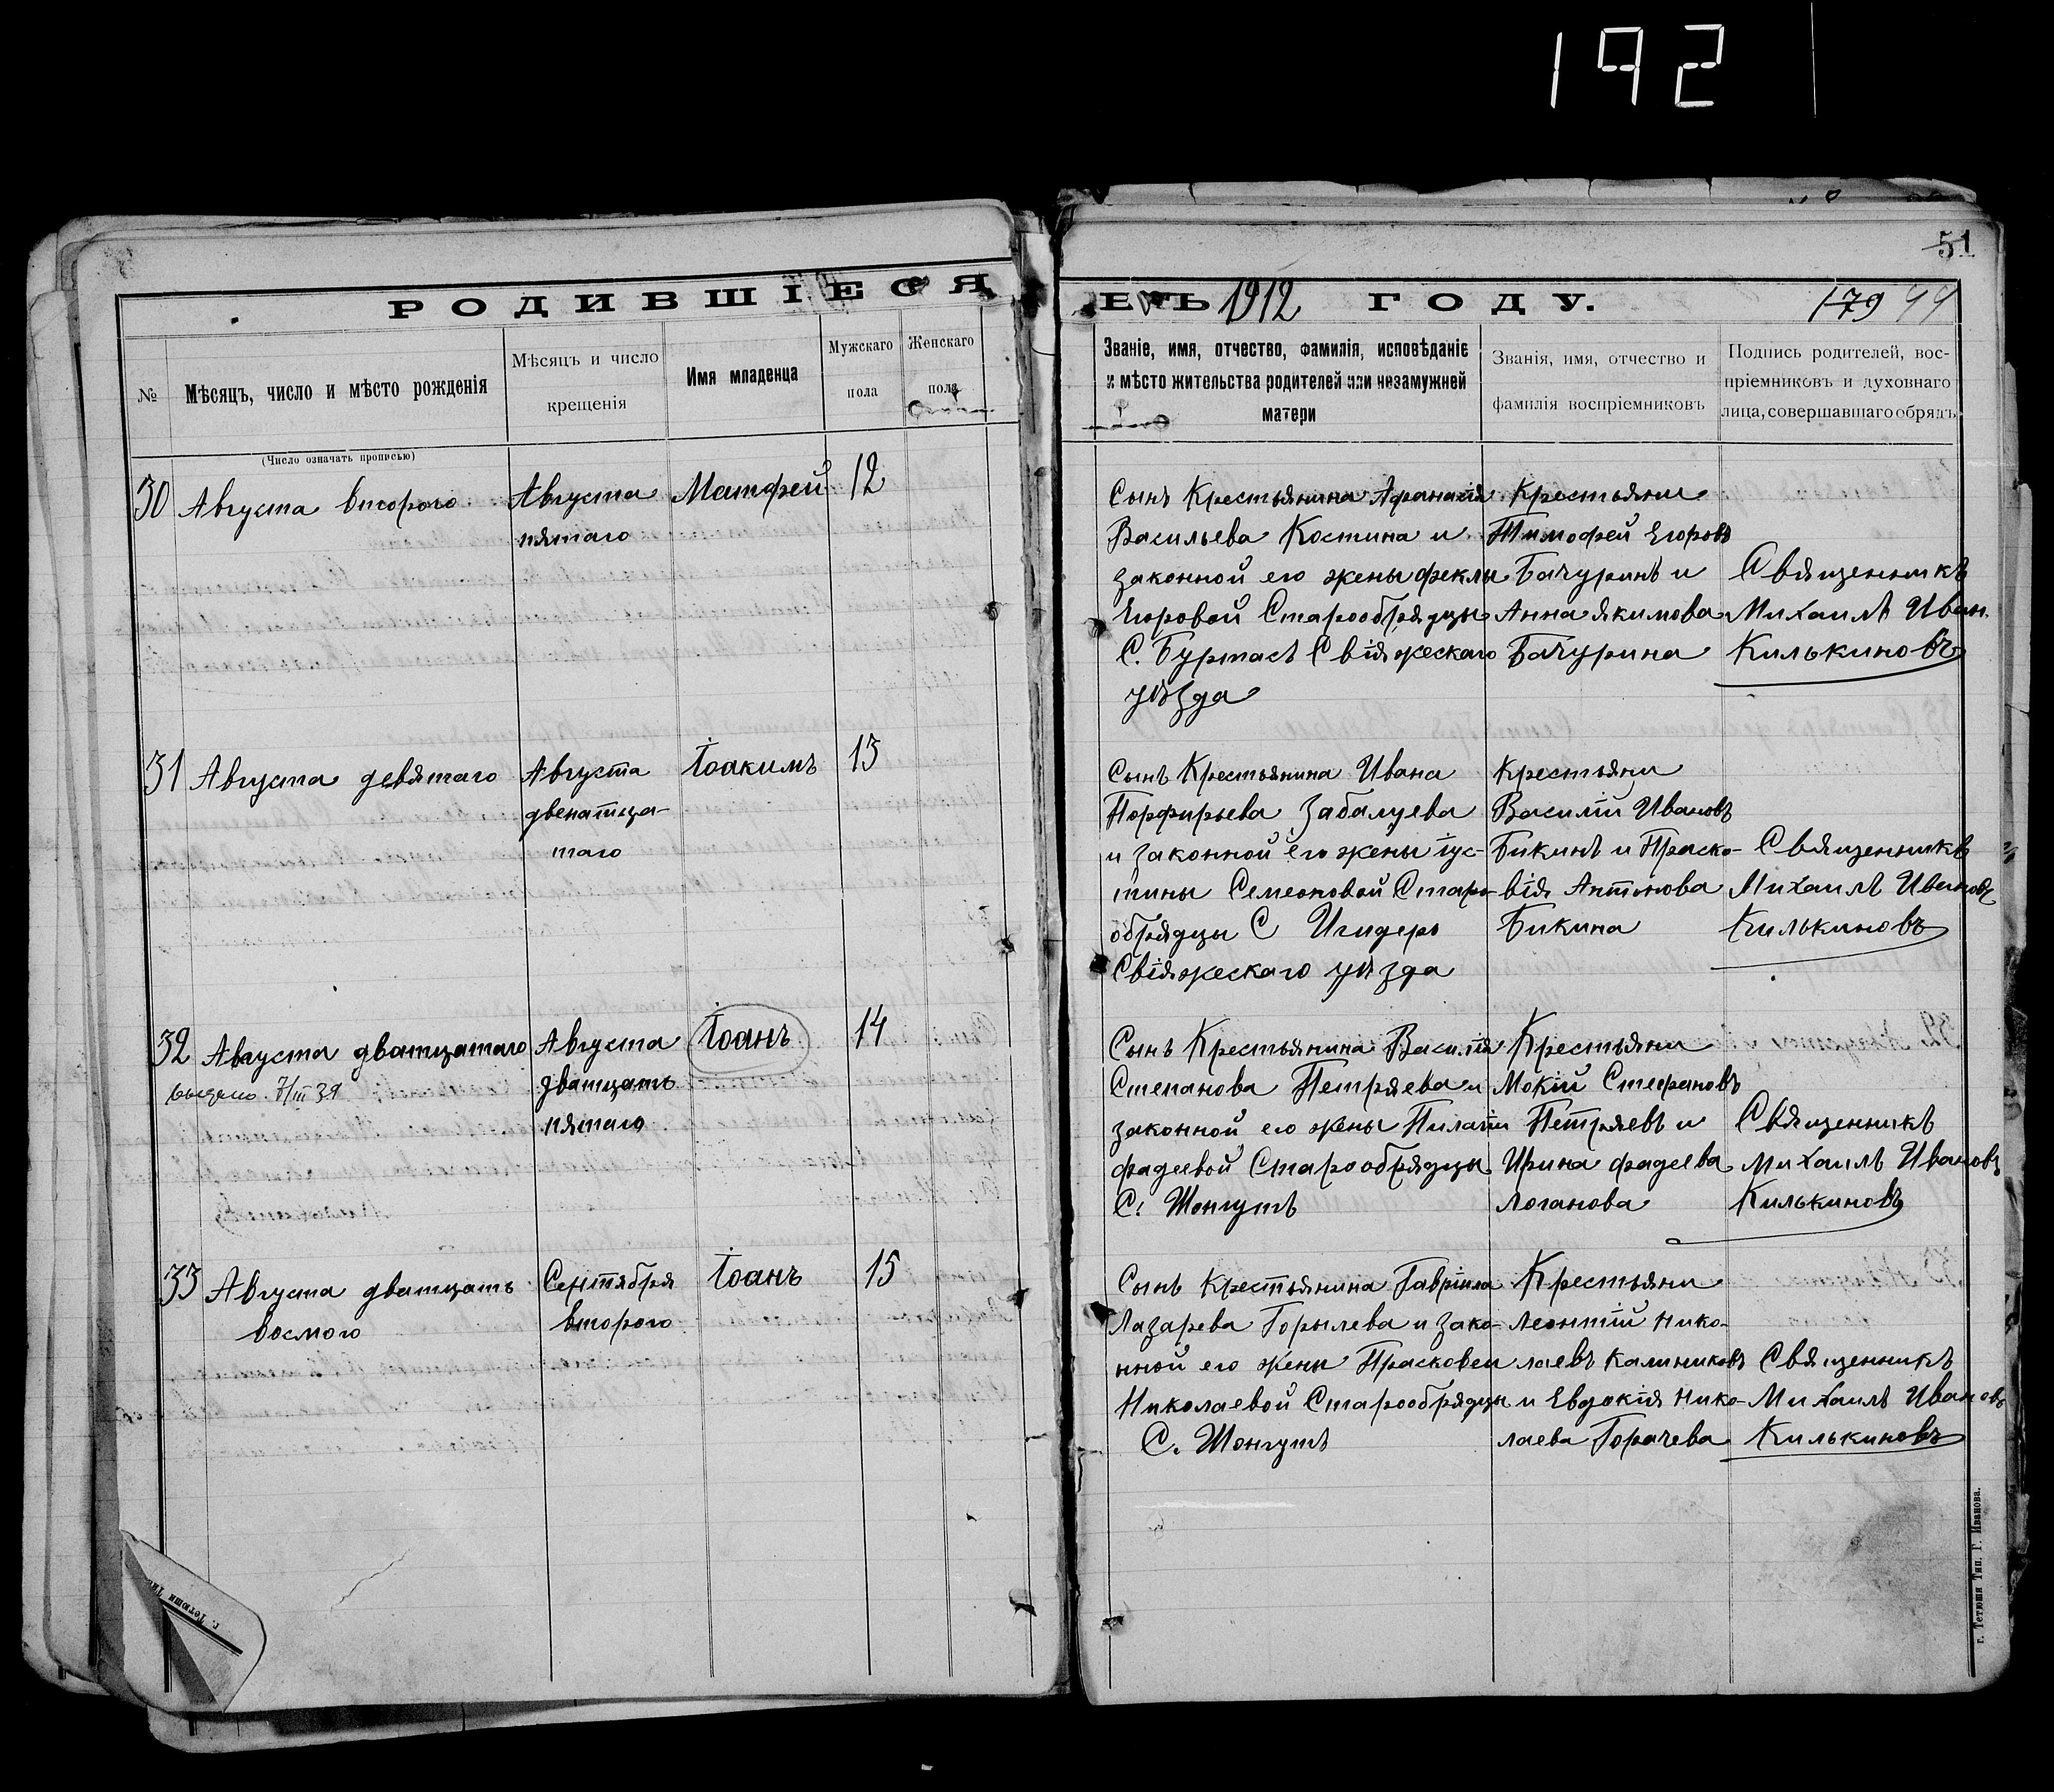 192
51
РОДИВШІЕСЯ
ВЪ 1912 ГОДУ.
179 44
№
Мѣсяцъ, число и мѣсто рожденія
Мѣсяцъ и число
крещенія
Имя младенца
Мужскаго
пола
Женскаго
пола
Званіе, имя, отчество, фамилія, исповѣданіе
и мѣсто жительства родителей или незамужней
матери
Званія, имя, отчество и
фамилія воспріемниковъ
Подпись родителей, вос-
пріемниковъ и духовнаго
лица, совершавшаго обрядъ
(Число означать прописью)
30 Августа второго
Августа
пятаго
Матфей
12
Сынъ Крестьянина Афанасія
Васильева Костина и
законной его жены феклы
Егоровой Старообрядцы
С. Буртасъ Свіяжескаго
уѣзда
Крестьяни
Тимофей Егоровъ
Бачуринъ и
Анна якимова
Бачурина
Священникъ
Михаилъ Иван.
Килькиновъ
31 Августа девятаго
Августа
двенатца-
таго
Іоакимъ
13
Сынъ Крестьянина Ивана
Порфирьева Забалуева
и законной его жены іус-
тины Семеоновой Старо-
обрядцы С Игидерь
Свіяжескаго уѣзда
Крестьяни
Василій Ивановъ
Бикинъ и Праско-
вія Антонова
Бикина
Священникъ
Михаилъ Ивановъ
Килькиновъ
32 Августа дватцатаго
выдано 7/III 39
Августа
дватцать
пятаго
Іоанъ
14
Сынъ Крестьянина Василія
Степанова Петряева и
законной его жены Пилагіи
фадеевой Старообрядцы
С. Шонгутъ
Крестьяни
Мокій Стефановъ
Петряевъ и
Ирина фадеева
Логанова
Священникъ
Михаилъ Ивановъ
Килькиновъ
33 Августа дватцать
восмого
Сентября
второго
Іоанъ
15
Сынъ Крестьянина Гавріила
Лазарева Горылева и зако-
нной его жены Прасковеи
Николаевой Старообрядцы
С. Шонгутъ
Крестьяни
Леонтій Нико-
лаевъ Калиниковъ
и Евдокія Нико-
лаева Горачева
Священникъ
Михаилъ Ивановъ
Килькиновъ
г. Тетюши Тип. Г. Иванова.
г. Тетюши Тип